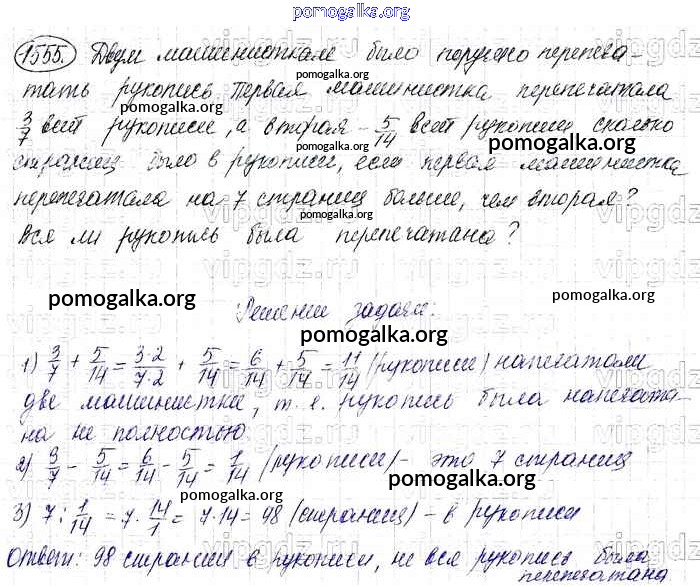 pomogalka.org
1555. Двум машинисткам было поручено перепеча-
тать рукопись. Первая машинистка перепечатала
3/7 всей рукописи, а вторая - 5/14 всей рукописи. Сколько
страниц было в рукописи, если первая машинистка
перепечатала на 7 страниц больше, чем вторая?
Вся ли рукопись была перепечатана?
Решение задачи:
1) 3/7 + 5/14 = 3·2/7·2 + 5/14 = 6/14 + 5/14 = 11/14 (рукописи) напечатали
две машинистки, т. е. рукопись была напечата-
на не полностью.
2) 3/7 - 5/14 = 6/14 - 5/14 = 1/14 (рукописи) - это 7 страниц
3) 7 : 1/14 = 7 · 14/1 = 7·14 = 98 (страниц) - в рукописи
Ответ: 98 страниц в рукописи, не вся рукопись была
перепечатана